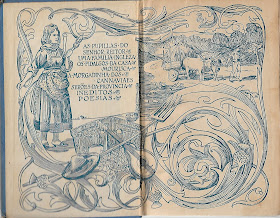 AS PUPILLAS DO
SENHOR REITOR
UMA FAMILIA INGLEZA
OS FIDALGOS DA CASA
MOURISCA
A MORGADINHA DOS
CANNAVIAES
SERÕES DA PROVINCIA
INEDITOS
POESIAS